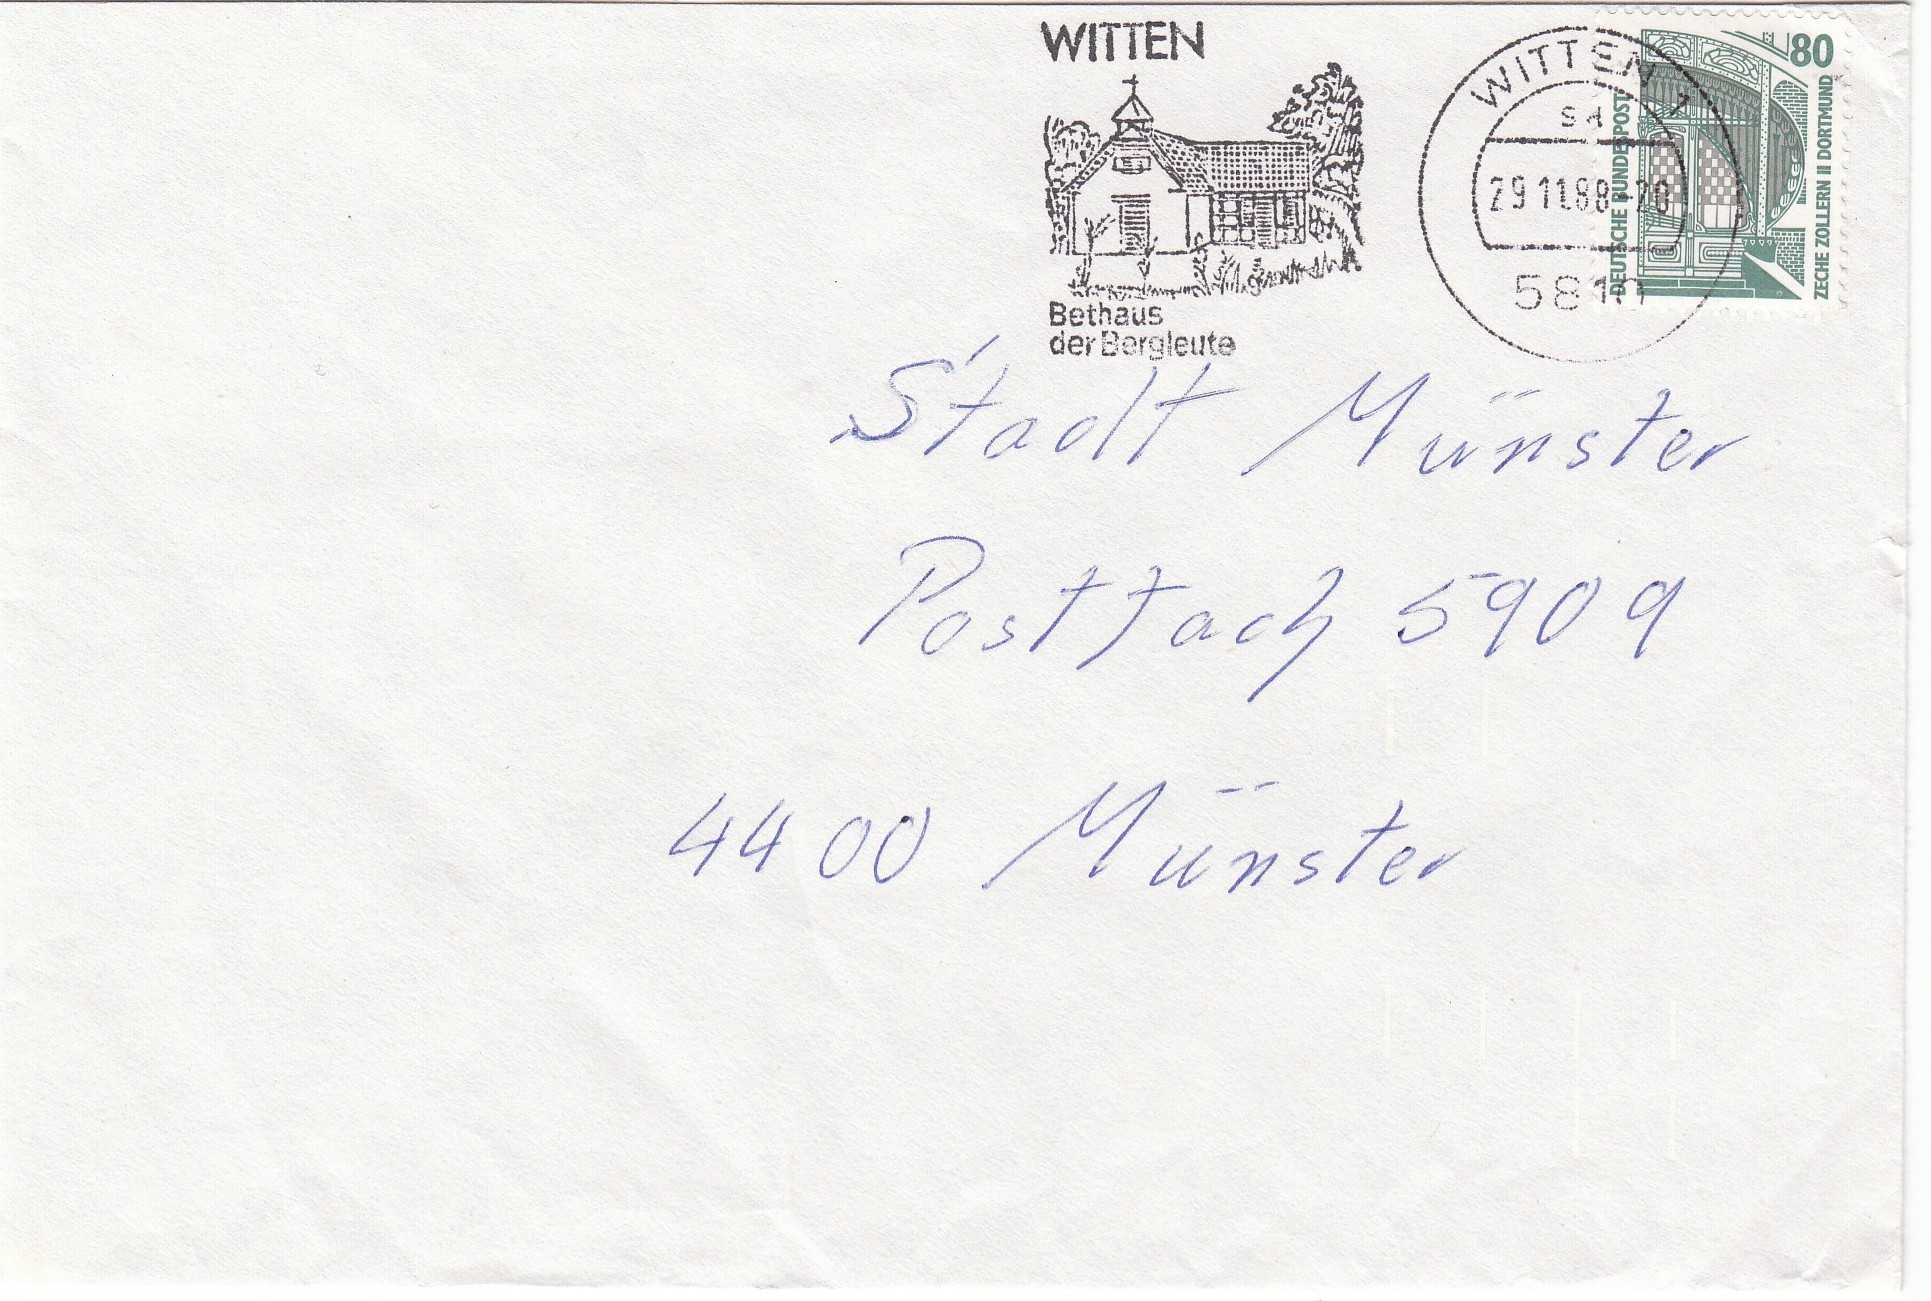 WITTEN
Bethaus
der Bergleute
WITTEN 1
sa
29.11.88-20
5810
80
DEUTSCHE BUNDESPOST
ZECHE ZOLLERN II DORTMUND
Stadt Münster
Postfach 5909
4400 Münster